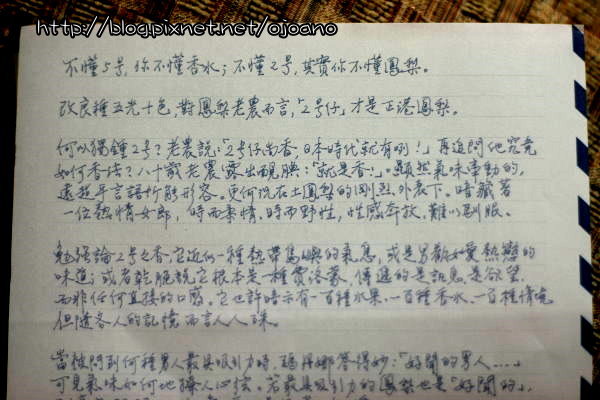 http://blog.pixnet.net/ojoano
不懂5号，你不懂香水；不懂2号，其實你不懂鳳梨。
改良種五光十色，對鳳梨老農而言，「2号仔」才是正港鳳梨。
何以獨鍾2号？老農說：「2号仔尚香，日本時代就有咧！」再追問他究竟
如何香法？八十歲老農露出靦腆：「就是香！」顯然氣味牽動的，
遠超乎言語所能形容。更何況在土鳳梨的剛烈外表下，暗藏著
一位熱情女郎，時而柔情，時而野性，性感奔放，難以馴服。
勉強論2号之香，它近似一種熱帶島嶼的氣息，或是男歡女愛熱戀的
味道；或者乾脆說它根本是一種費洛蒙，傳遞的是訊息，是欲望，
而非任何直接的口腹。它也許暗示有一百種水果、一百種香水、一百種情境
但隨各人的記憶而言人人殊。
當被問到何種男人最具吸引力時，瑪丹娜答得妙：「好聞的男人……」
可見氣味如何地撩人心弦。若最具吸引力的鳳梨也是「好聞的」，